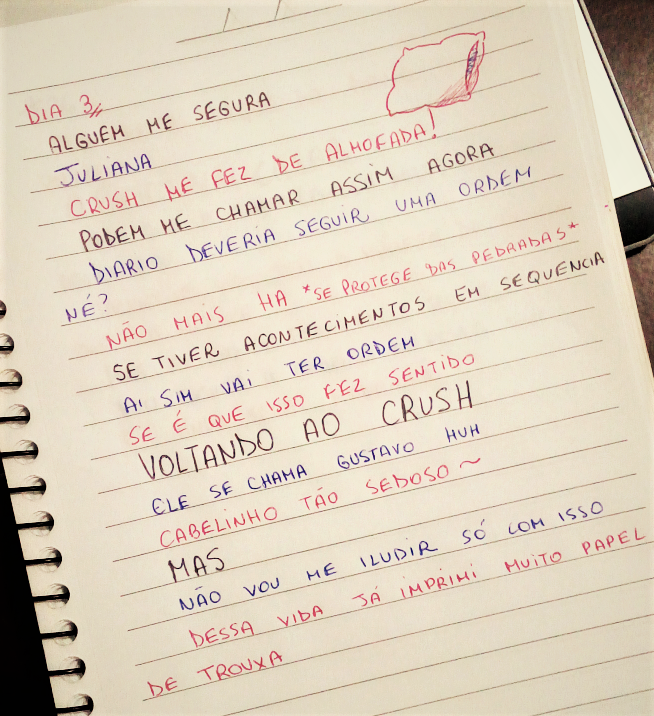 DIA 3//
ALGUEM ME SEGURA
JULIANA
CRUSH ME FEZ DE ALMOFADA!
PODEM ME CHAMAR ASSIM AGORA
DIARIO DEVERIA SEGUIR UMA ORDEM
NÉ?
NÃO MAIS HA *SE PROTEGE DAS PEDRADAS*
SE TIVER ACONTECIMENTOS EM SEQUENCIA
AI SIM VAI TER ORDEM
SE É QUE ISSO FEZ SENTIDO
VOLTANDO AO CRUSH
ELE SE CHAMA GUSTAVO HUH
CABELINHO TÃO SEDOSO ~
MAS
NÃO VOU ME ILUDIR SÓ COM ISSO
DESSA VIDA JÁ IMPRIMI MUITO PAPEL
DE TROUXA